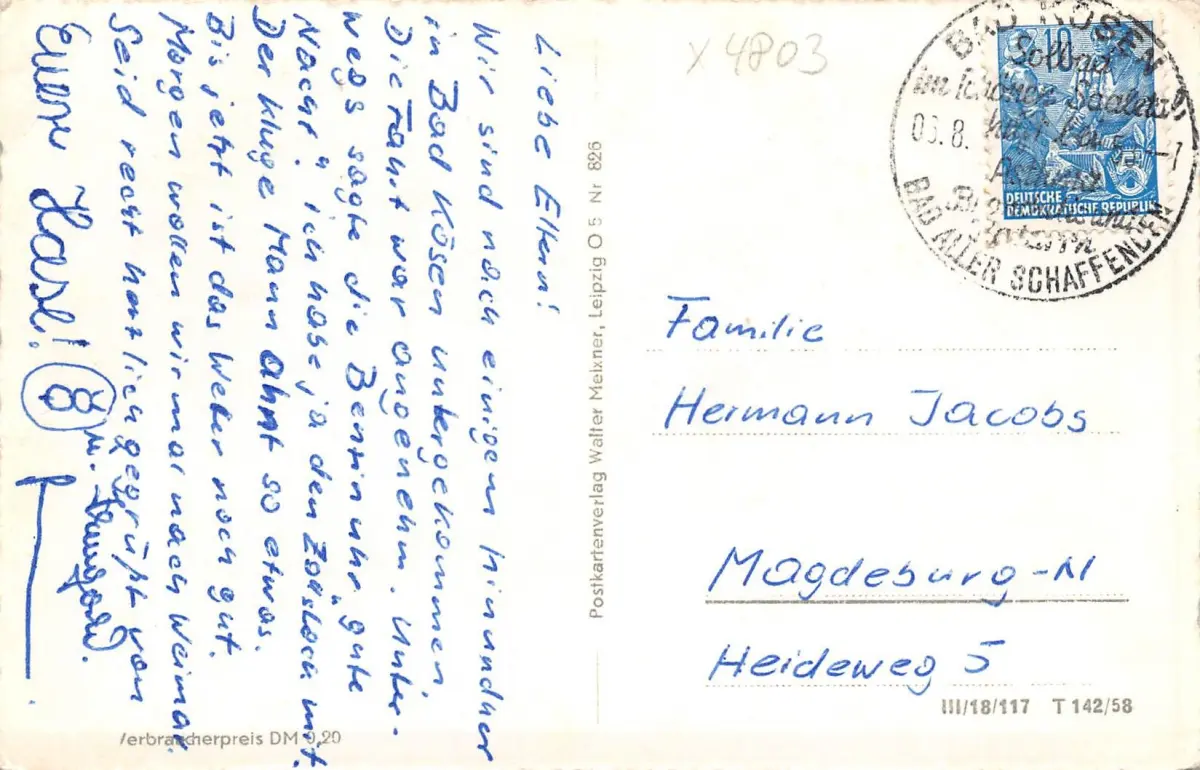 Liebe Eltern!
Wir sind nach einigem hin und her
in Bad Kösen untergekommen.
Die Fahrt war angenehm. Unter-
wegs sagte die Benzinuhr „gute
Nacht", ich habe ja den Zollstock mit.
Der kluge Mann ahnt so etwas.
Bis jetzt ist das Wetter noch gut.
Morgen wollen wir mal nach Weimar.
Seid recht herzlich gegrüßt von
Eurer
Verbraucherpreis DM 0,20
Postkartenverlag Walter Meixner, Leipzig O 5 Nr 826
X 4803
BAD KÖSEN
Solbad
im schönen Saaletal
03.8.
BAD ALLER SCHAFFENDEN
10
5
DEUTSCHE
DEMOKRATISCHE REPUBLIK
Familie
Hermann Jacobs
Magdeburg-N
Heideweg 5
III/18/117 T 142/58